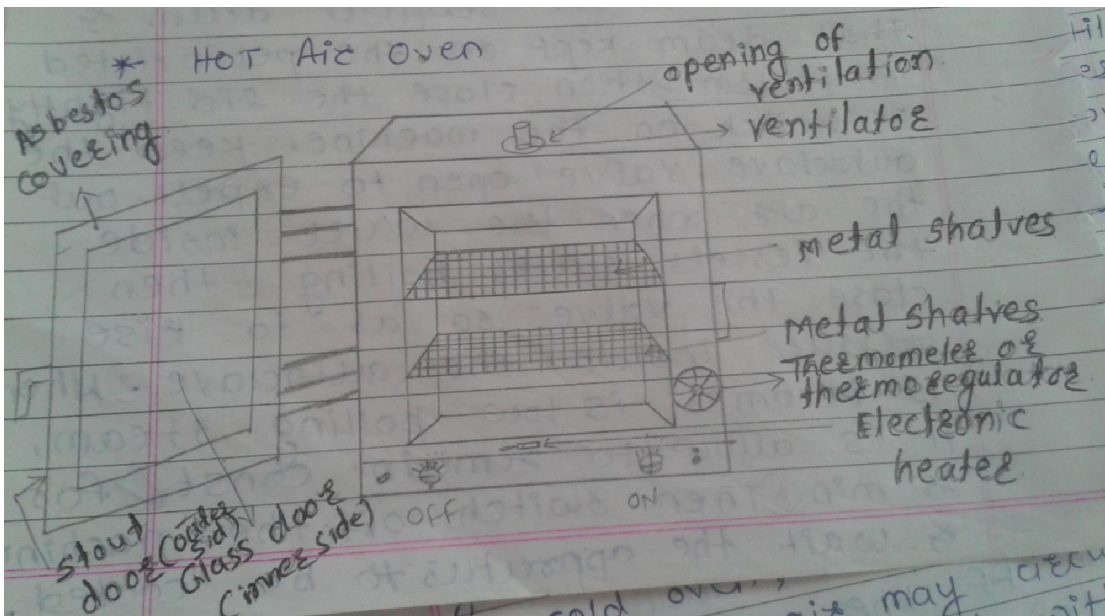 * HOT Air Oven
Asbestos
covering
opening of
ventilation
ventilator
metal shalves
Metal shalves
Thermometer or
thermoregulator
Electronic
heater
OFF
ON
stout
door (outer
sid)
Glass door
(inner side)
may